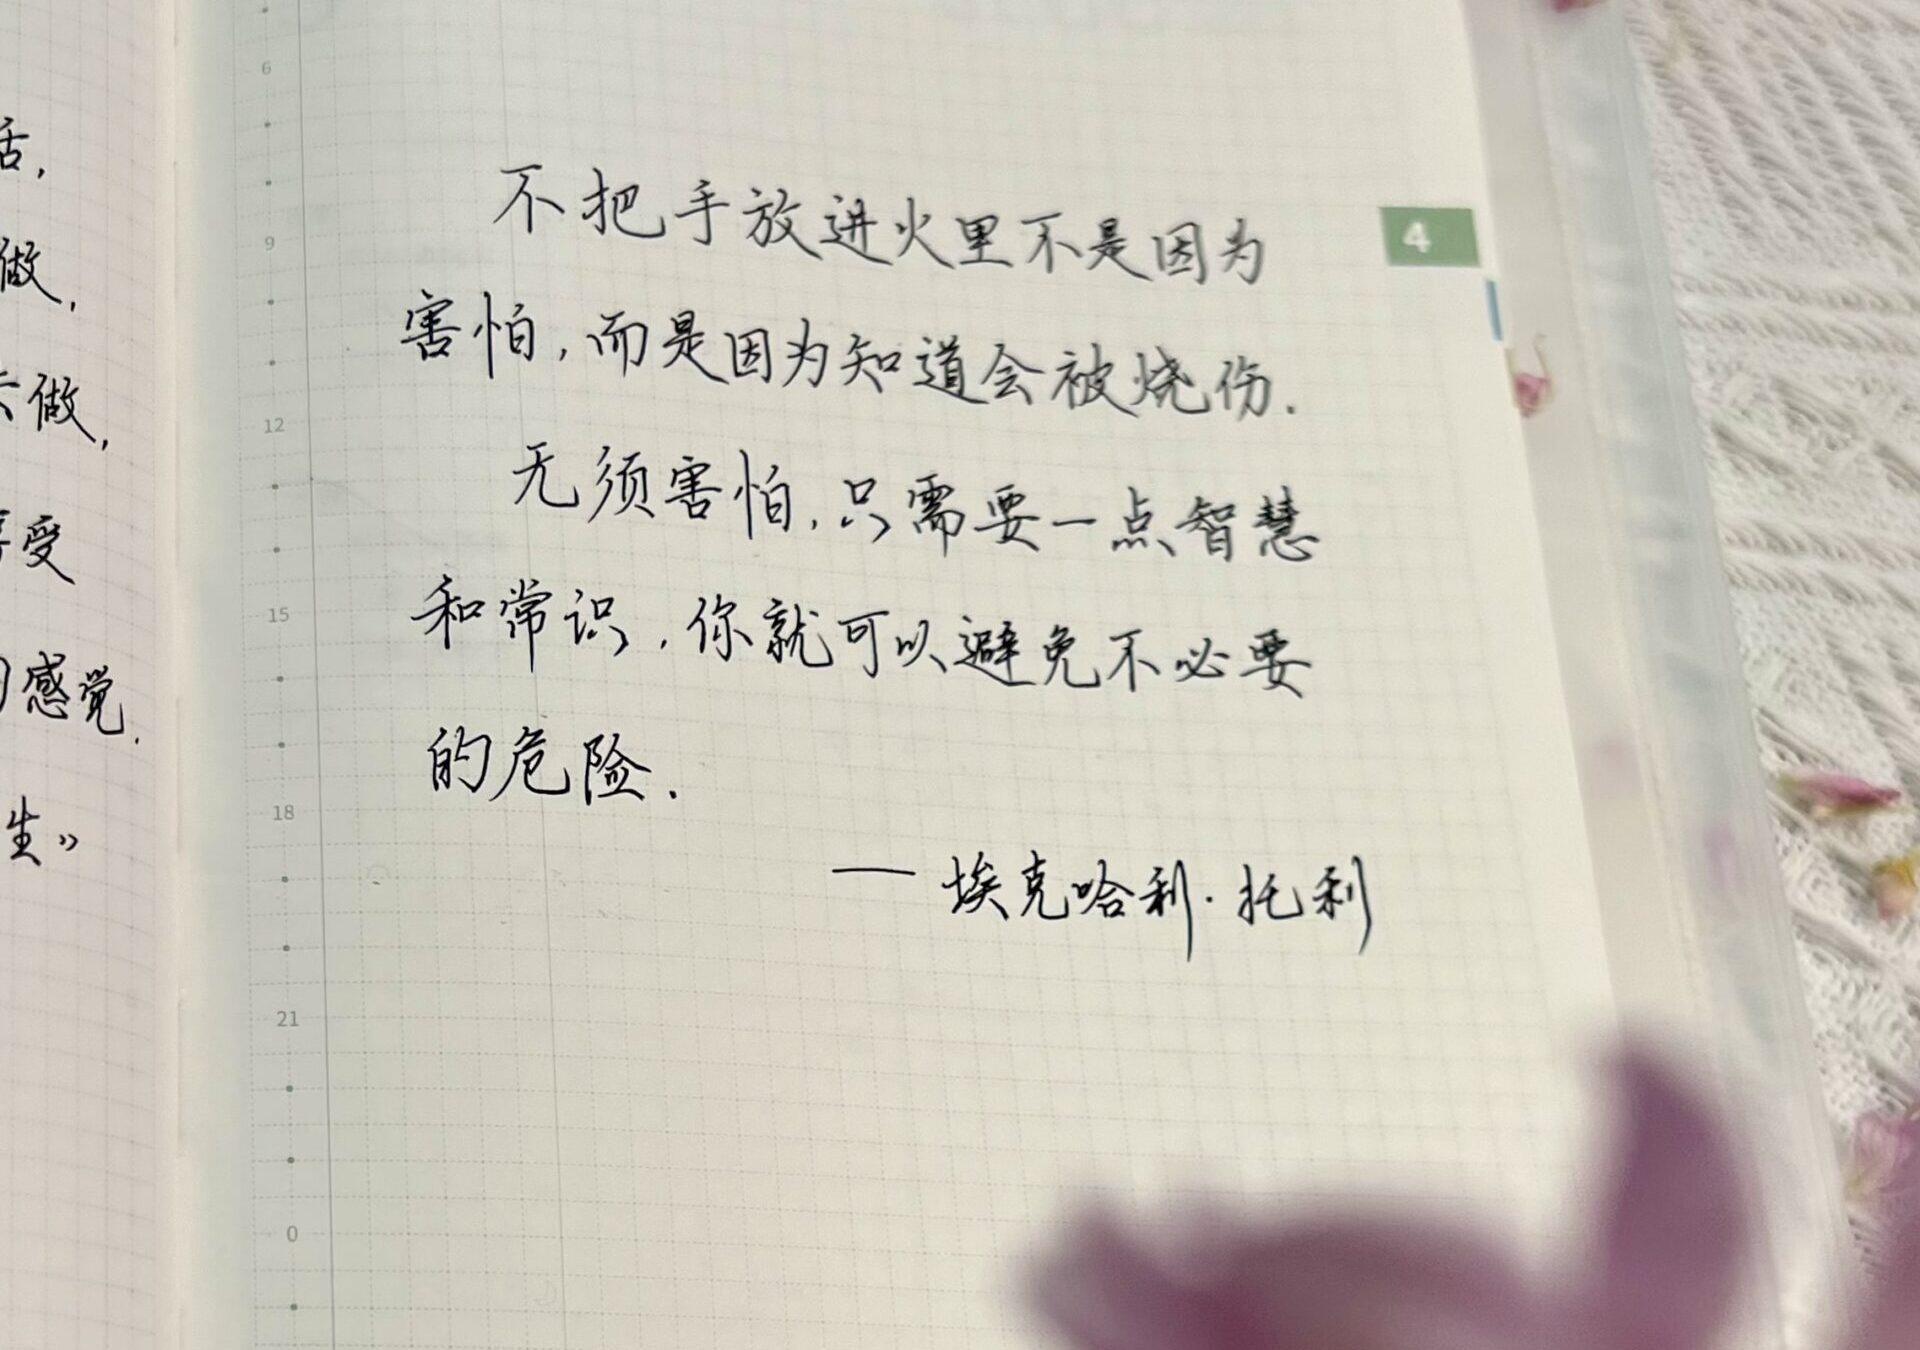 活,
做,
去做,
享受
感觉.
生》
6
9
12
15
18
21
0
4
不把手放进火里不是因为
害怕,而是因为知道会被烧伤.
无须害怕,只需要一点智慧
和常识,你就可以避免不必要
的危险.
——埃克哈利·托利